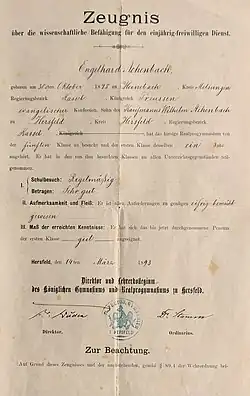 Zeugnis
über die wissenschaftliche Befähigung für den einjährig-freiwilligen Dienst.
Engelhard Achenbach
geboren am 30ten Oktober 1875 zu Kreis Melsungen
Regierungsbezirk Kassel Preussen
evangelischer Konfession, Sohn des Kaufmanns Wilhelm Achenbach
zu Hersfeld, Kreis Hersfeld, Regierungsbezirk
Kassel Königreich hat das hiesige Realprogymnasium von
der fünften Klasse an besucht und der ersten Klasse desselben ein Jahr
angehört. Er hat in den von ihm besuchten Klassen an allen Unterrichtsgegenständen teil-
genommen.
I. Schulbesuch: Regelmäßig
Betragen: Sehr gut.
II. Aufmerksamkeit und Fleiß: Er ist allen Anforderungen zu genügen eifrig bemüht
gewesen
III. Maß der erreichten Kenntnisse: Er hat sich das bis jetzt durchgenommene Pensum
der ersten Klasse gut angeeignet.
Hersfeld, den 14ten März 1893
Direktor und Lehrerkollegium
des Königlichen Gymnasiums und Realprogymnasiums zu Hersfeld.
HERSFELD
Dr. Duden Dr.
Direktor. Ordinarius.
Zur Beachtung.
Auf Grund dieses Zeugnisses und der der Wehrordnung bei-